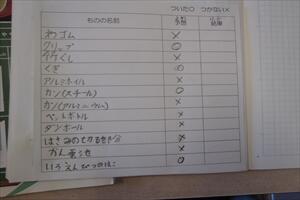 ついた○ つかない×
ものの名前 予想 結果
わゴム ×
クリップ ○
竹ぐし ×
くぎ ○
アルミホイル ×
カン(スチール) ○
カン(アルミニウム) ×
ペットボトル ×
ダンボール ×
はさみの切る部分 ×
かん電池 ×
いろえんぴつのはこ ○